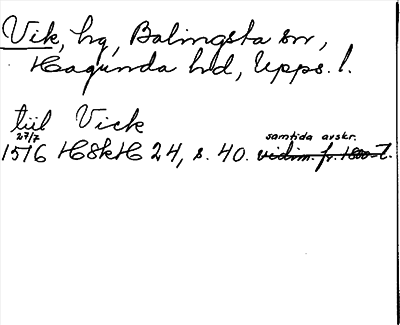 Vik, hg, Balingsta sn,
Hagunda hd, Upps. l.
till Vick
27/7 samtida avskr.
1516 HSkH 24, s. 40. vidim. fr. 1800-t.